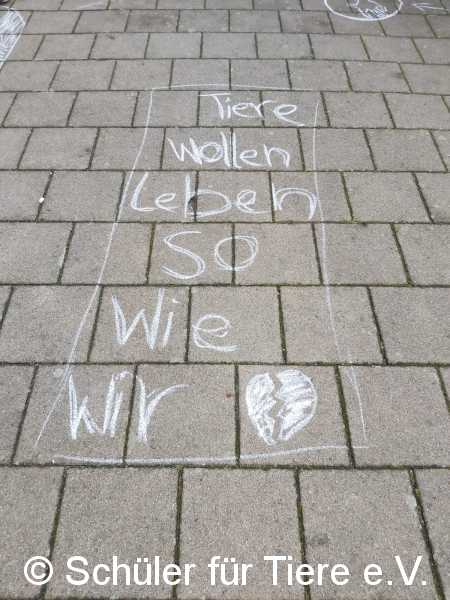 Tiere
wollen
Leben
So
Wie
Wir
© Schüler für Tiere e.V.